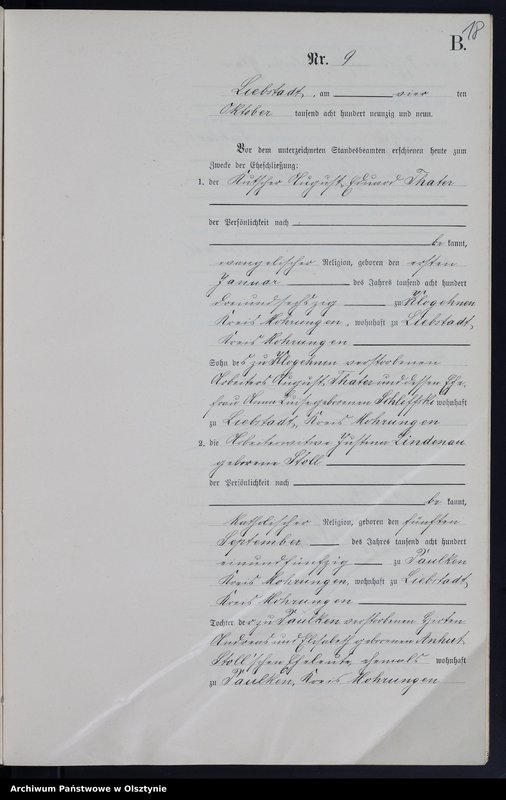 18
B.
Nr. 9
Liebstadt, am vier ten
Oktober tausend acht hundert neunzig und neun.
Vor dem unterzeichneten Standesbeamten erschienen heute zum
Zwecke der Eheschließung:
1. der Kutscher August Eduard Thater
der Persönlichkeit nach
be kannt,
evangelischer Religion, geboren den ersten
Januar des Jahres tausend acht hundert
dreiundsechszig zu Klogehnen
Kreis Mohrungen, wohnhaft zu Liebstadt,
Kreis Mohrungen
Sohn des zu Klogehnen verstorbenen
Arbeiters August Thater und dessen Ehe-
frau Anna Luise geborenen wohnhaft
zu Liebstadt, Kreis Mohrungen
2. die Arbeiterwitwe Justina Lindenau
geborene Stoll
der Persönlichkeit nach
be kannt,
katholischer Religion, geboren den fünften
September des Jahres tausend acht hundert
einundfünfzig zu Paulken
Kreis Mohrungen, wohnhaft zu Liebstadt,
Kreis Mohrungen
Tochter der zu Paulken verstorbenen Hirten
Andreas und Elisabeth geborenen Anhut
Stoll'schen Eheleute, ehemals wohnhaft
zu Paulken, Kreis Mohrungen
Archiwum Państwowe w Olsztynie